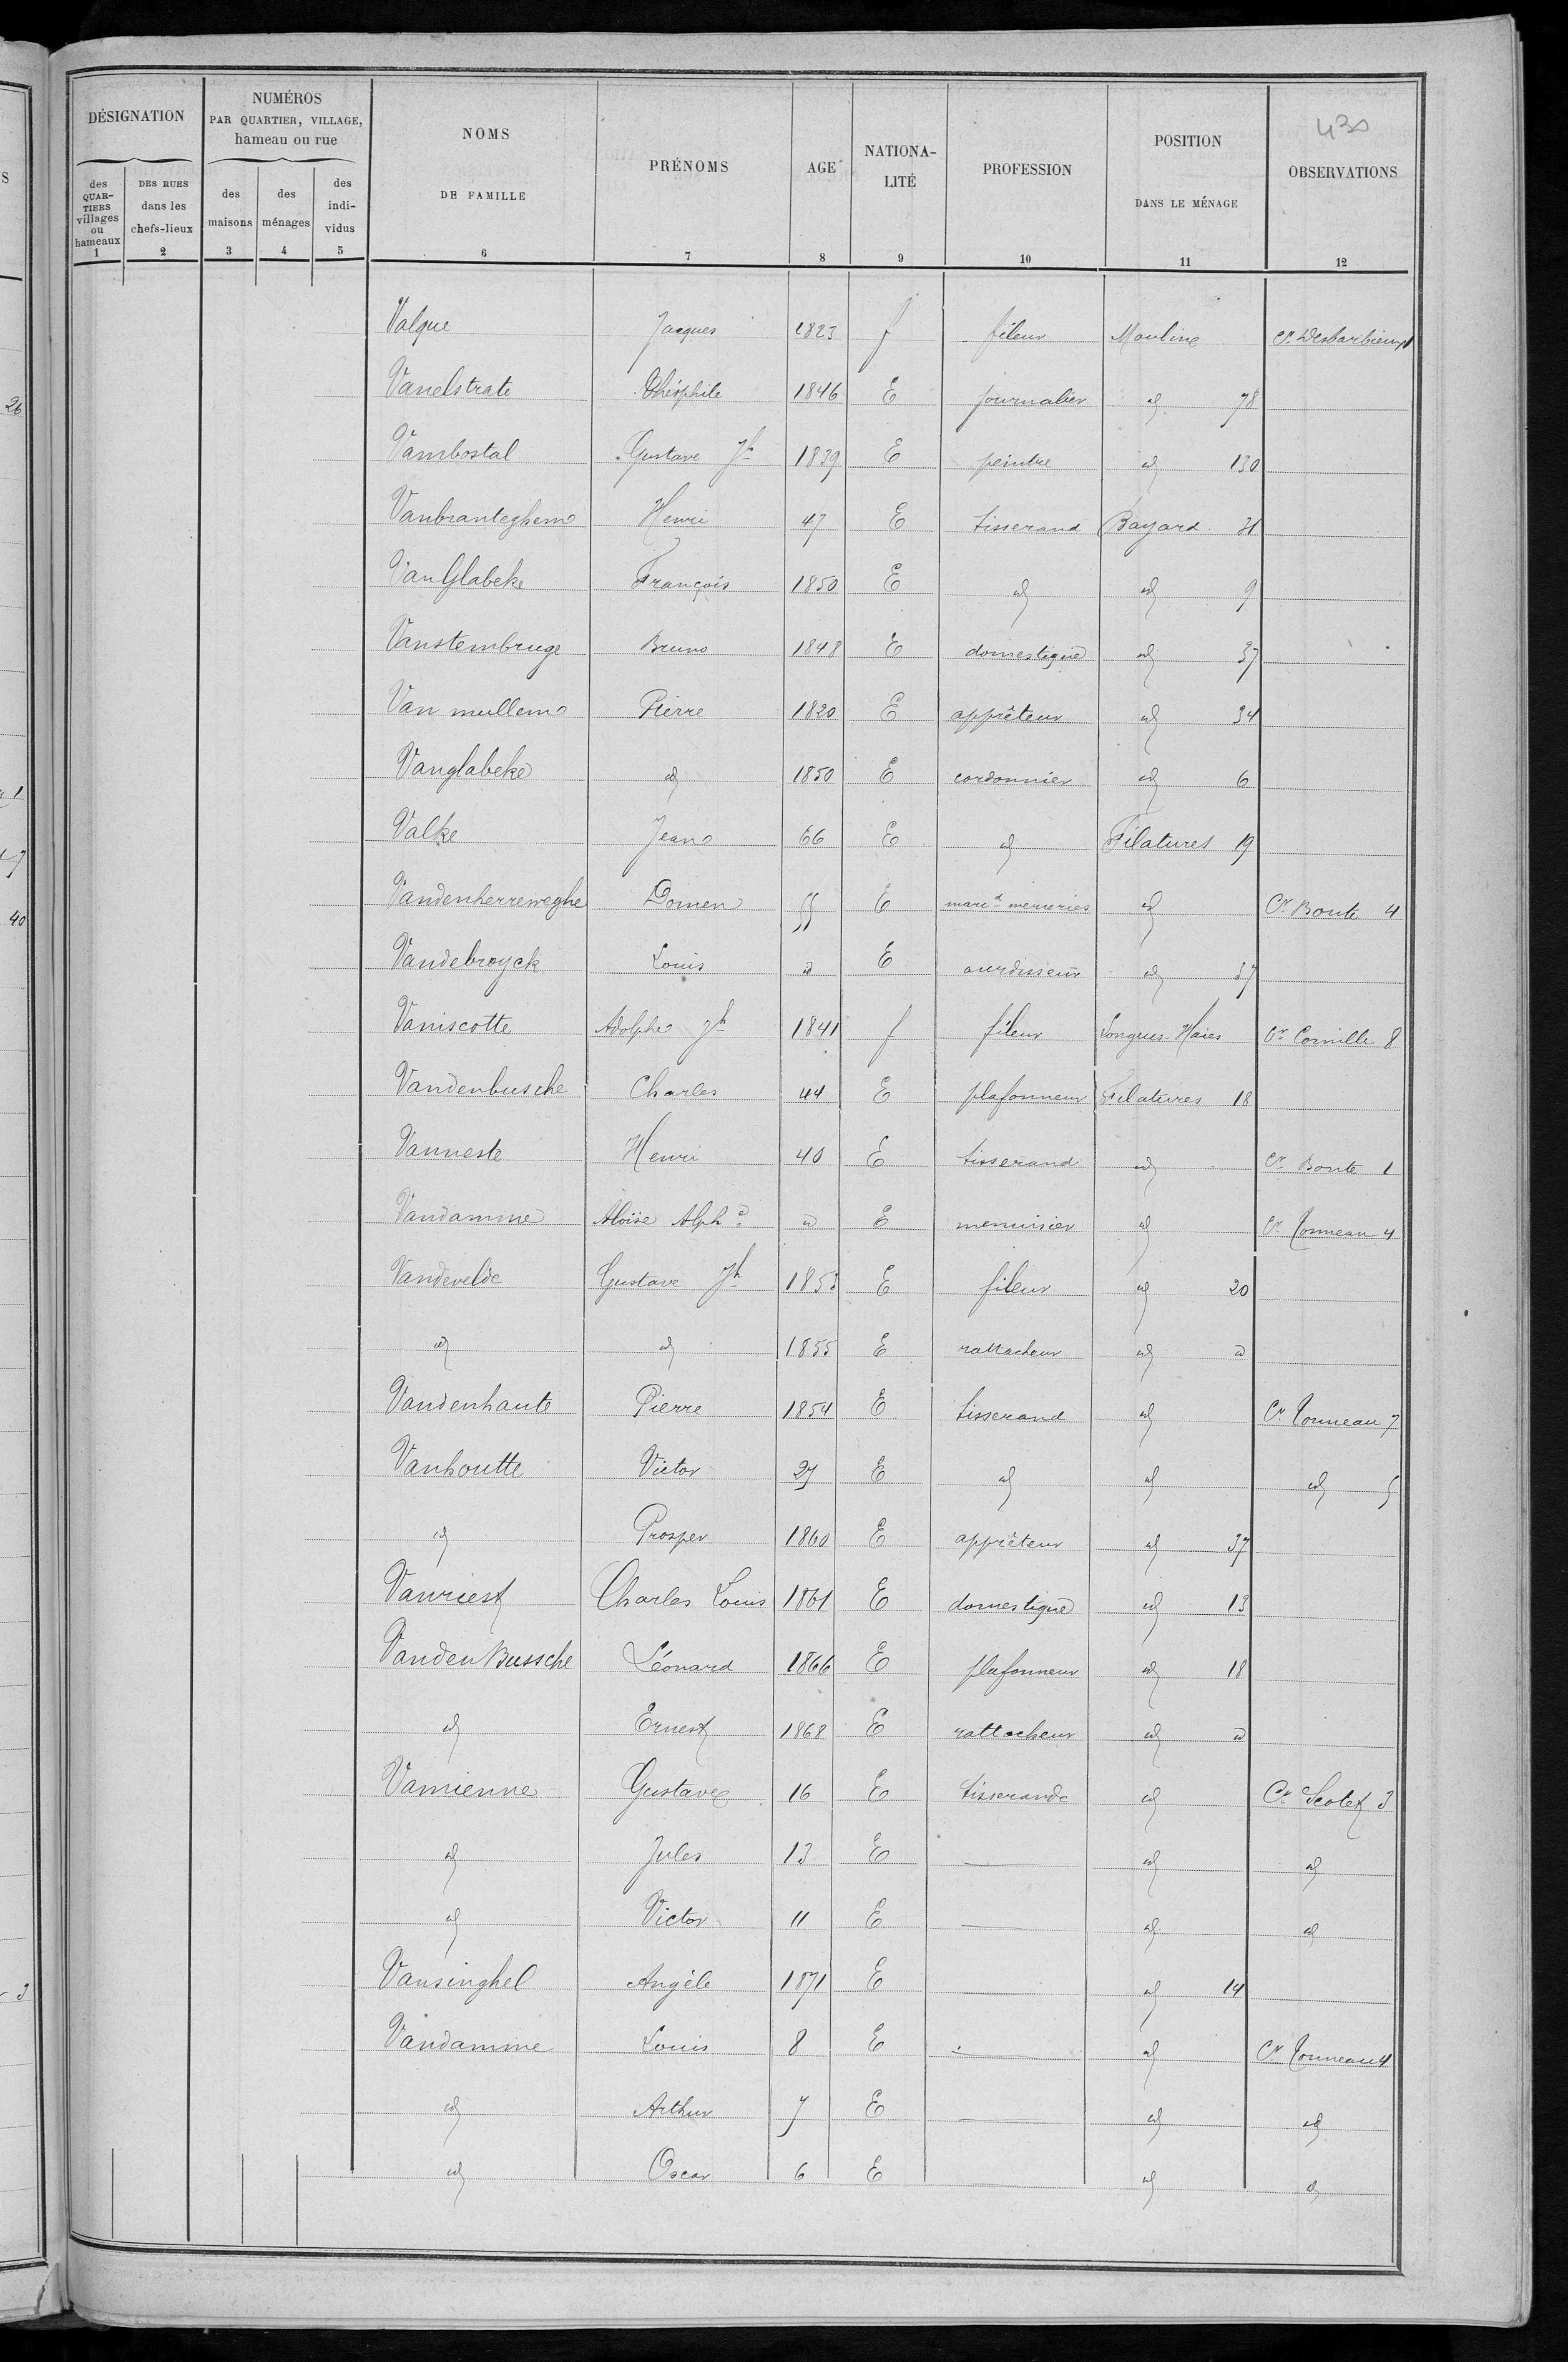 430
DÉSIGNATION
des QUARTIERS villages ou hameaux 1
DES RUES dans les chefs-lieux 2
NUMÉROS PAR QUARTIER, VILLAGE, hameau ou rue
des maisons 3
des ménages 4
des individus 5
NOMS DE FAMILLE 6
PRÉNOMS 7
AGE 8
NATIONALITÉ 9
PROFESSION 10
POSITION DANS LE MÉNAGE 11
OBSERVATIONS 12
Valque Jacques 1823 f fileur Mouline Cr Desbarbieux
Vanelstrate Théophile 1846 E journalier id 78
Vambostal Gustave Jh 1839 E peintre id 130
Vanbranteghem Henri 47 E tisserand Bayard 31
VanGlabeke François 1850 E id id 9
Vanstembruge Bruno 1848 E domestique id 37
Van mullem Pierre 1820 E apprêteur id 34
Vanglabeke id 1850 E cordonnier id 6
Valke Jean 66 E id Filatures 19
Vandenherreweghe Domen 55 E marcd merceries id Cr Bonte 4
Vandebroyck Louis id E ourdisseur id 37
Vaniscotte Adolphe Jh 1841 f fileur Longues Haies Cr Cornille 8
Vandenbusche Charles 44 E plafonneur Filatures 18
Vanneste Henri 40 E tisserand id Cr Bonte 1
Vandamme Aloïse Alphe id E menuisier id Cr Tonneau 4
Vandevelde Gustave Jh 1853 E fileur id 20
id id 1855 E rattacheur id id
Vandenhaute Pierre 1854 E tisserand id Cr Tonneau 7
Vanhoutte Victor 27 E id id id 5
id Prosper 1860 E apprêteur id 37
Vanriest Charles Louis 1861 E domestique id 13
VandenBussche Léonard 1866 E plafonneur id 18
id Ernest 1868 E rattacheur id id
Vamienne Gustave 16 E tisserande id Cr Scolet 3
id Jules 13 E id id
id Victor 11 E id id
Vansinghel Angèle 1871 E id 14
Vandamme Louis 8 E id Cr Tonneau 4
id Arthur 7 E id id
id Oscar 6 E id id